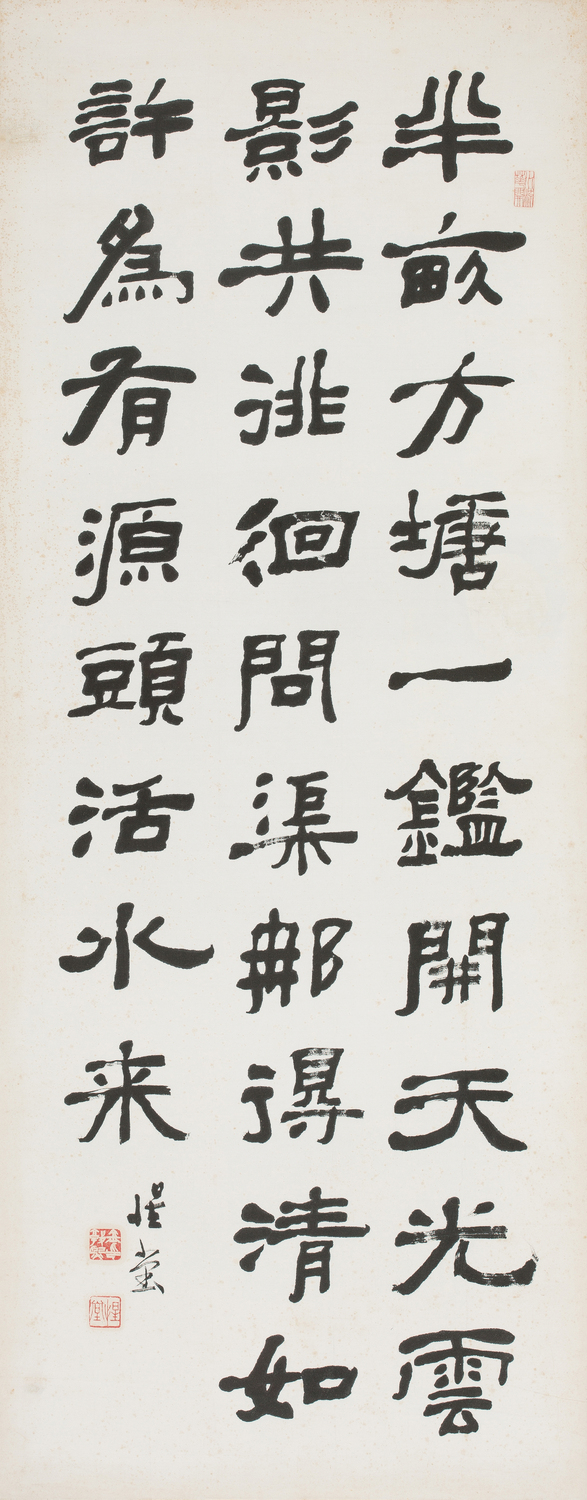 半畝方塘一鑑開天光雲
影共徘徊問渠那得清如
許為有源頭活水来
惺堂
惺堂